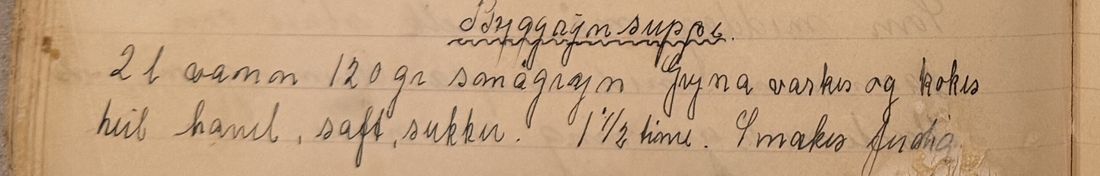 Byggrynsuppe.
2 l vann 120 gr smågryn Gryna vaskes og kokes
heil kanel, saft, sukker. 1 1/2 time. Smakes ferdig